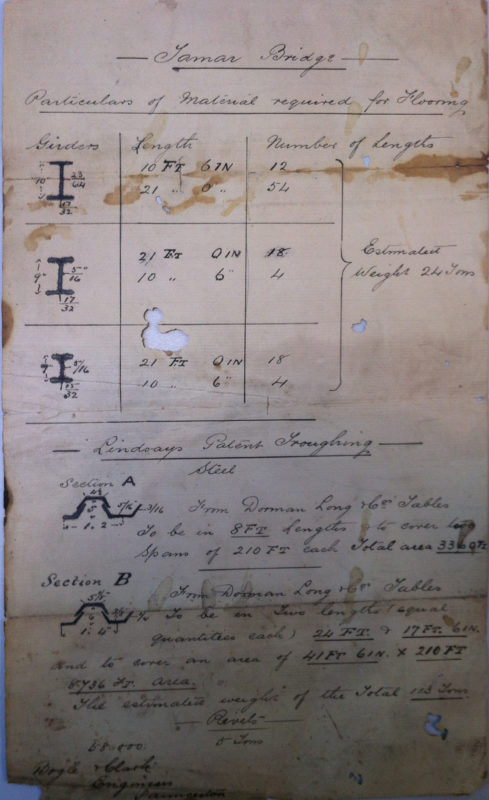 Tamar Bridge
Particulars of Material required for Flooring
Girders Length Number of Lengths
10" 23/64 10 FT 6 IN 12
17/32 21 " 0 " 54
9" 5/16" 21 FT 0 IN 18
17/32 10 " 6" 4
Estimated
Weight 24 Tons
7" 5/16 21 FT 0 IN 18
15/32 10 " 6" 4
Lindsays Patent Troughing
Steel
Section A
5" 5/16 3/16 From Dorman Long & Cos Tables
1. 2 To be in 8 FT Lengths & to cover two
Spans of 210 FT each Total area 3360 Ft
Section B
From Dorman Long & Cos Tables
6 To be in Two lengths (equal
1. 4" quantities each) 24 FT. & 17 FT. 6 IN.
and to cover an area of 41 FT 6 IN. X 210 FT
8736 Ft. area.
The estimated weight of the Total 123 Tons.
Rivets
58.000. 5 Tons
Doyle & Clark
Engineers
Launceston